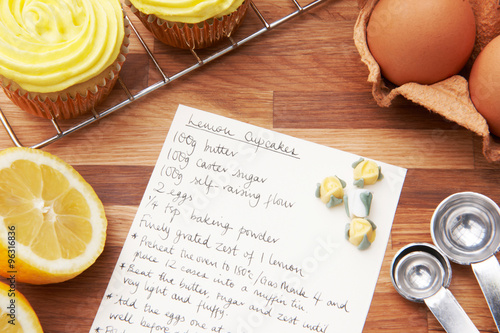 Lemon Cupcakes
100g butter
100g caster sugar
100g self-raising flour
2 eggs
1/4 tsp baking powder
Finely grated zest of 1 lemon
* Preheat the oven to 150°c/Gas Mark 4 and
place 12 cases into a muffin tin
* Beat the butter, sugar and zest until
very light and fluffy.
* Add the eggs one at
well before
96231838